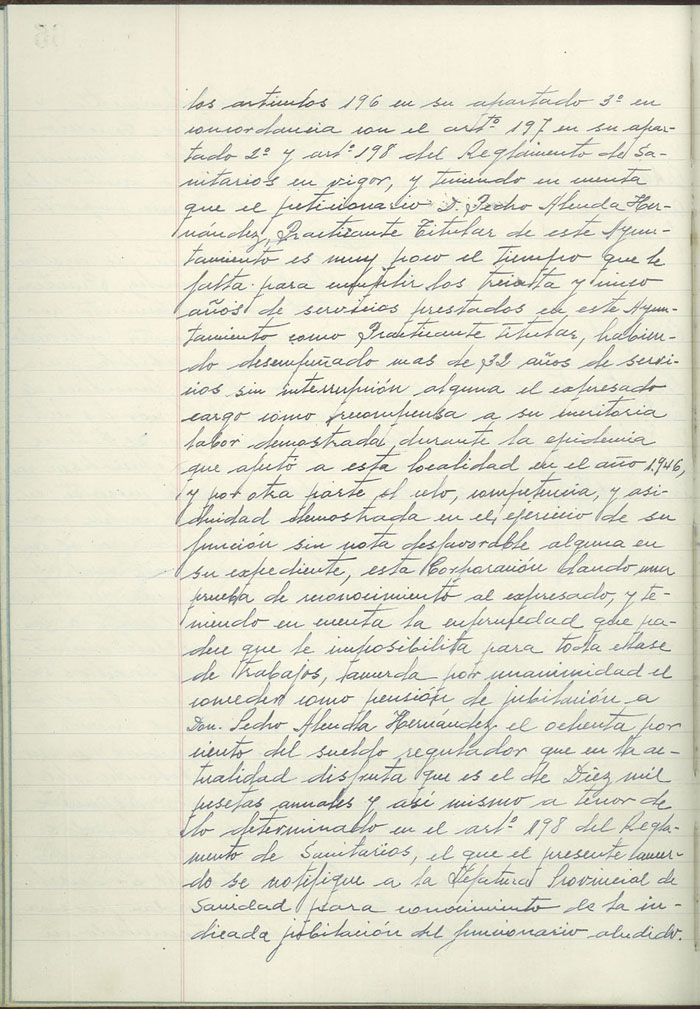 los articulos 196 en su apartado 3º en
concordancia con el artº 197 en su apar-
tado 2º y artº 198 del Reglamento de Sa-
nitarios en vigor, y teniendo en cuenta
que el peticionario D. Pedro Alenda Her-
nández, Practicante Titular de este Ayun-
tamiento es muy poco el tiempo que le
falta para cumplir los treinta y cinco
años de servicios prestados en este Ayun-
tamiento como Practicante titular, habien-
do desempeñado mas de 32 años de servi-
cios sin interrupción alguna el expresado
cargo como recompensa a su meritoria
labor demostrada durante la epidemia
que azotó a esta localidad en el año 1.946,
y por otra parte el celo, competencia, y asi-
duidad demostrada en el ejercicio de su
función sin nota desfavorable alguna en
su expediente, esta Corporación dando una
prueba de reconocimiento al expresado, y te-
niendo en cuenta la enfermedad que pa-
dece que le imposibilita para toda clase
de trabajos, acuerda por unanimidad el
conceder como pensión de jubilación a
Don. Pedro Alenda Hernández el ochenta por
ciento del sueldo regulador que en la ac-
tualidad disfruta que es el de Diez mil
pesetas anuales y así mismo a tenor de
lo determinado en el artº 198 del Regla-
mento de Sanitarios, el que el presente acuer-
do se notifique a la Jefatura Provincial de
Sanidad para conocimiento de la in-
dicada jubilación del funcionario aludido.